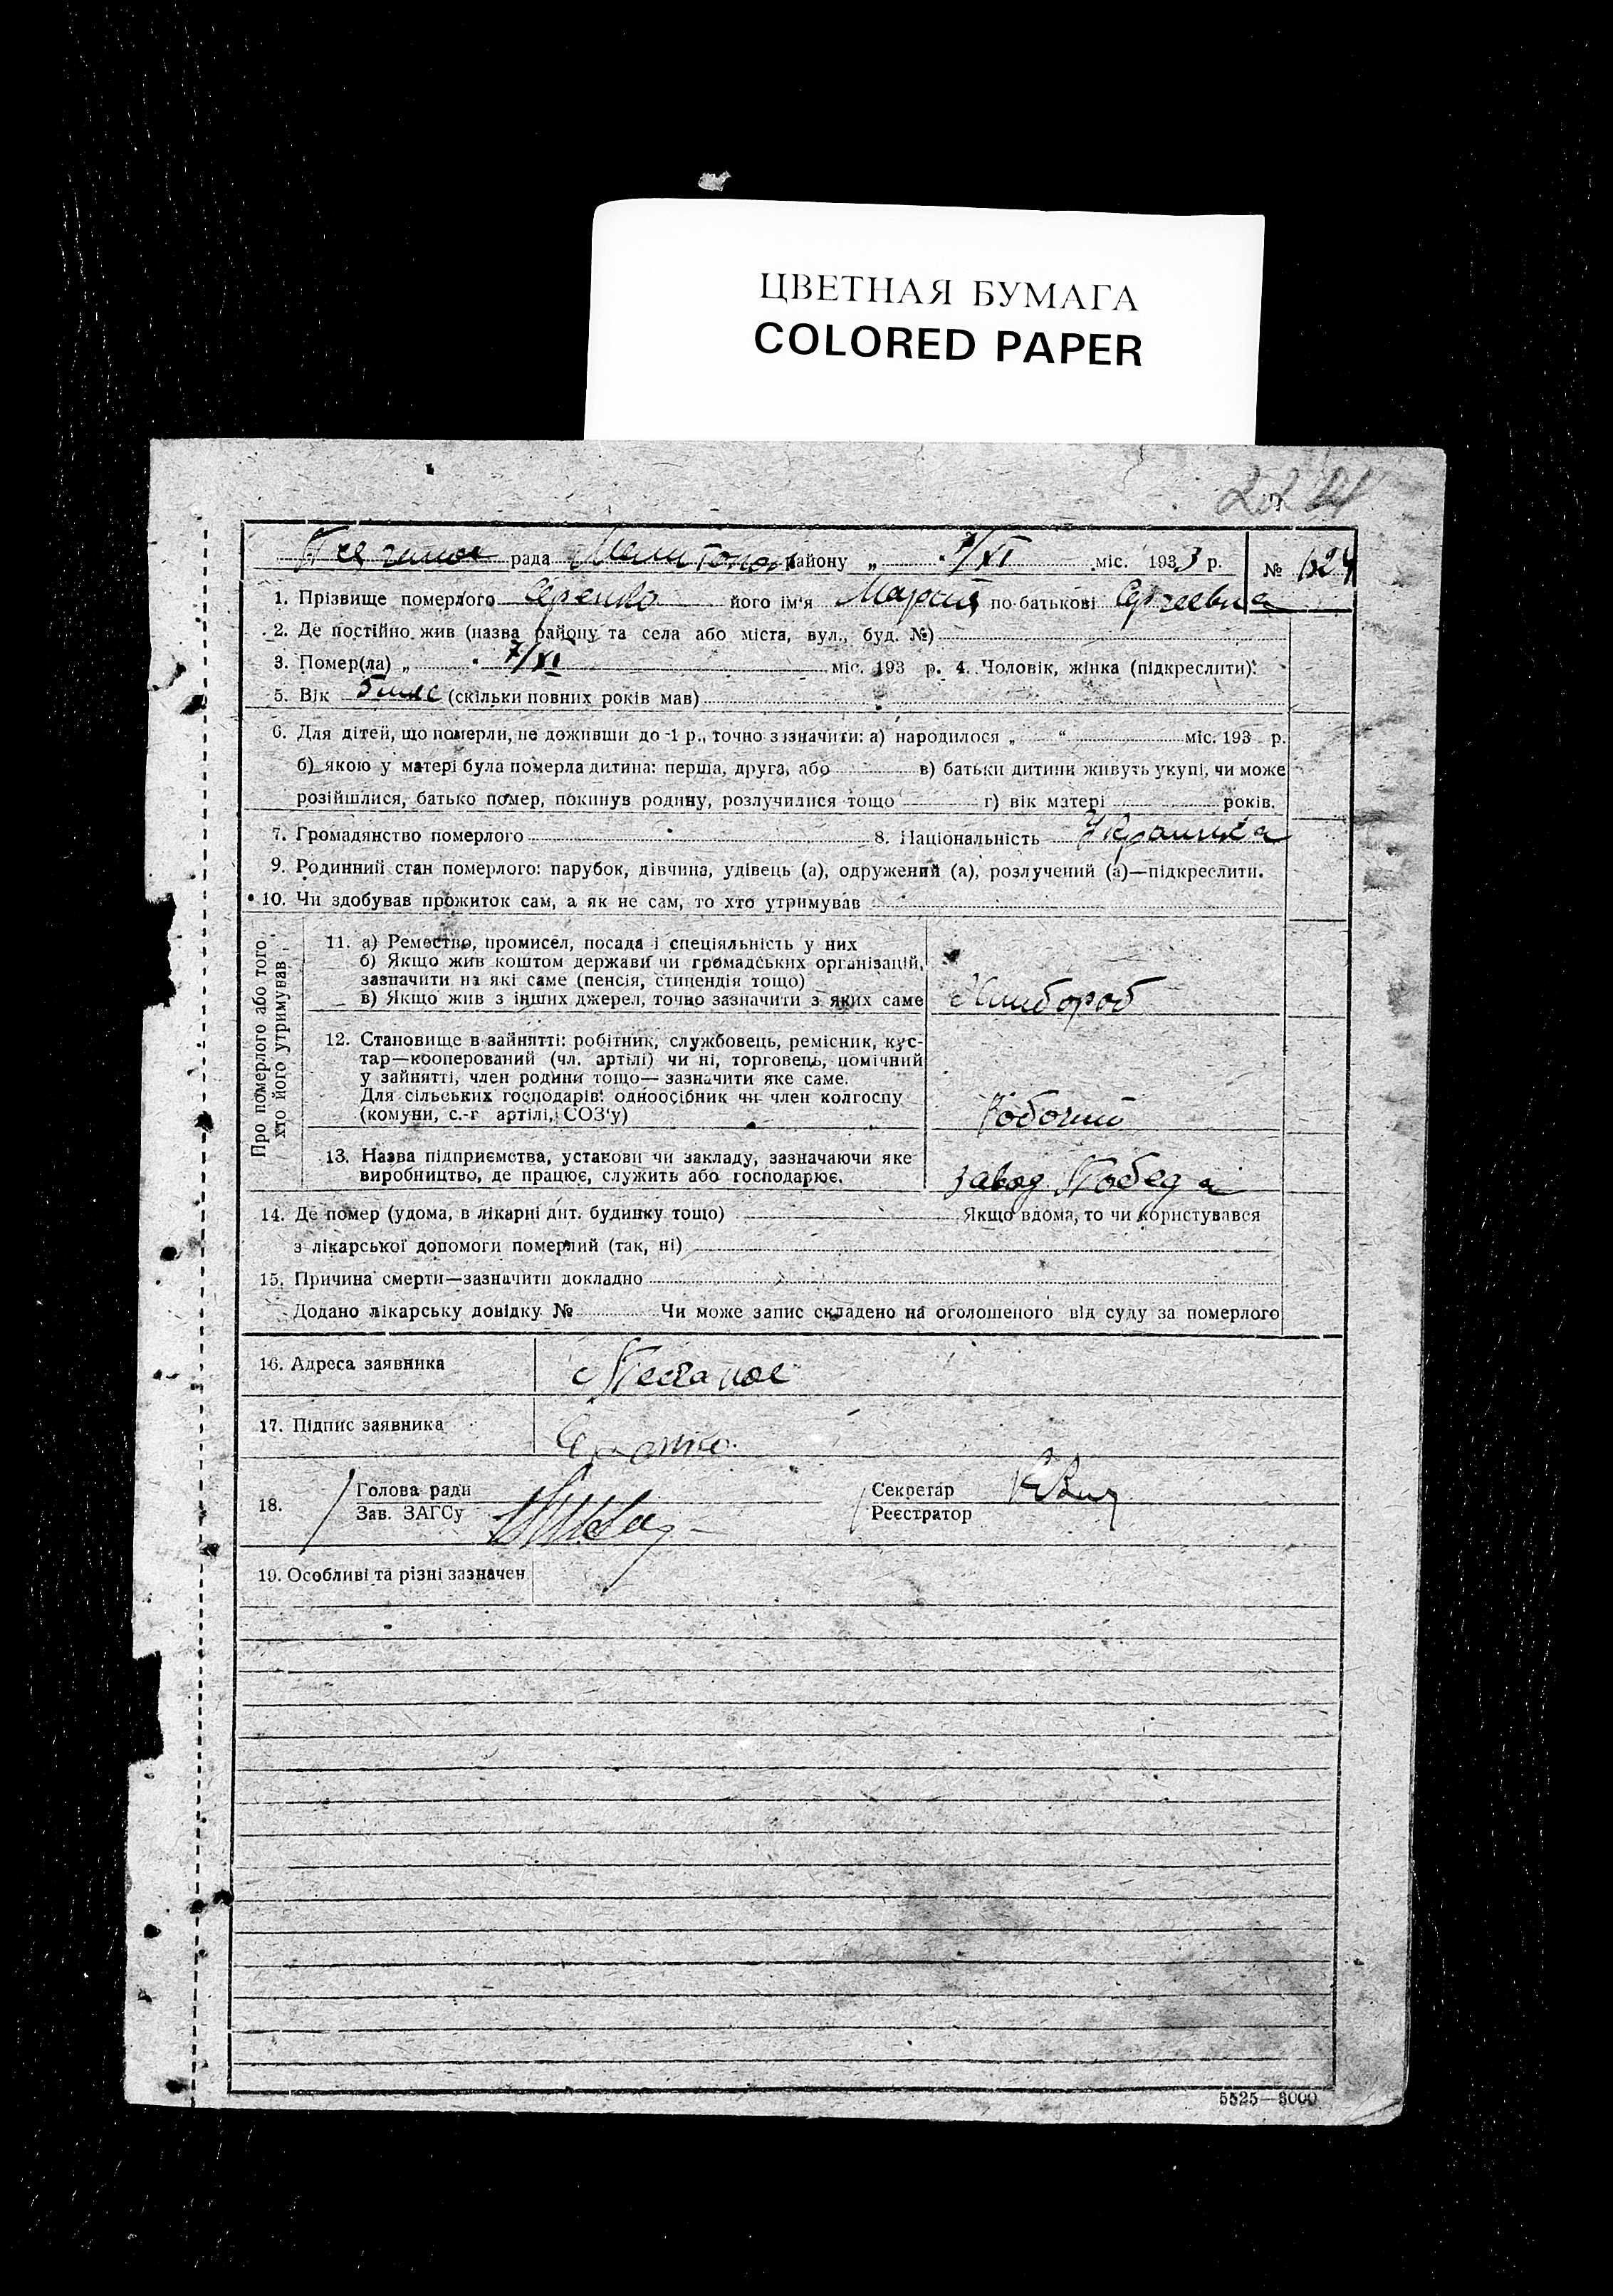 ЦВЕТНАЯ БУМАГА
COLORED PAPER
рада Мелитопол району „ 7/XI міс. 1933 р. № 624
1. Прізвище померлого Серенко його ім'я Мария по-батькові Сергеевна
2. Де постійно жив (назва району та села або міста, вул., буд. №)
3. Помер(ла) „ 7/XI міс. 193 р. 4. Чоловік, жінка (підкреслити).
5. Вік (скільки повних років мав)
6. Для дітей, що померли, не доживши до 1 р., точно зазначити: а) народилося „ “ міс. 193 р.
б) якою у матері була померла дитина: перша, друга, або в) батьки дитини живуть укупі, чи може
розійшлися, батько помер, покинув родину, розлучилися тощо г) вік матері років.
7. Громадянство померлого 8. Національність Украинка
9. Родинний стан померлого: парубок, дівчина, удівець (а), одружений (а), розлучений (а)—підкреслити.
10. Чи здобував прожиток сам, а як не сам, то хто утримував
Про померлого або того, хто його утримував
11. а) Ремество, промисел, посада і спеціяльність у них
б) Якщо жив коштом держави чи громадських організацій,
зазначити на які саме (пенсія, стипендія тощо)
в) Якщо жив з інших джерел, точно зазначити з яких саме
Хлибороб
12. Становище в зайнятті: робітник, службовець, ремісник, кус-
тар—кооперований (чл. артілі) чи ні, торговець, помічний
у зайнятті, член родини тощо— зазначити яке саме.
Для сільських господарів: одноосібник чи член колгоспу
(комуни, с.-г артілі, СОЗ'у)
Робочий
13. Назва підприємства, установи чи закладу, зазначаючи яке
виробництво, де працює, служить або господарює.
завод Победа
14. Де помер (удома, в лікарні дит. будинку тощо) Якщо вдома, то чи користувався
з лікарської допомоги померлий (так, ні)
15. Причина смерти—зазначити докладно
Додано лікарську довідку № Чи може запис складено на оголошеного від суду за померлого
16. Адреса заявника с Песчаное
17. Підпис заявника
18. Голова ради Секретар
Зав. ЗАГСу Реєстратор
19. Особливі та різні зазначен
5525—3000